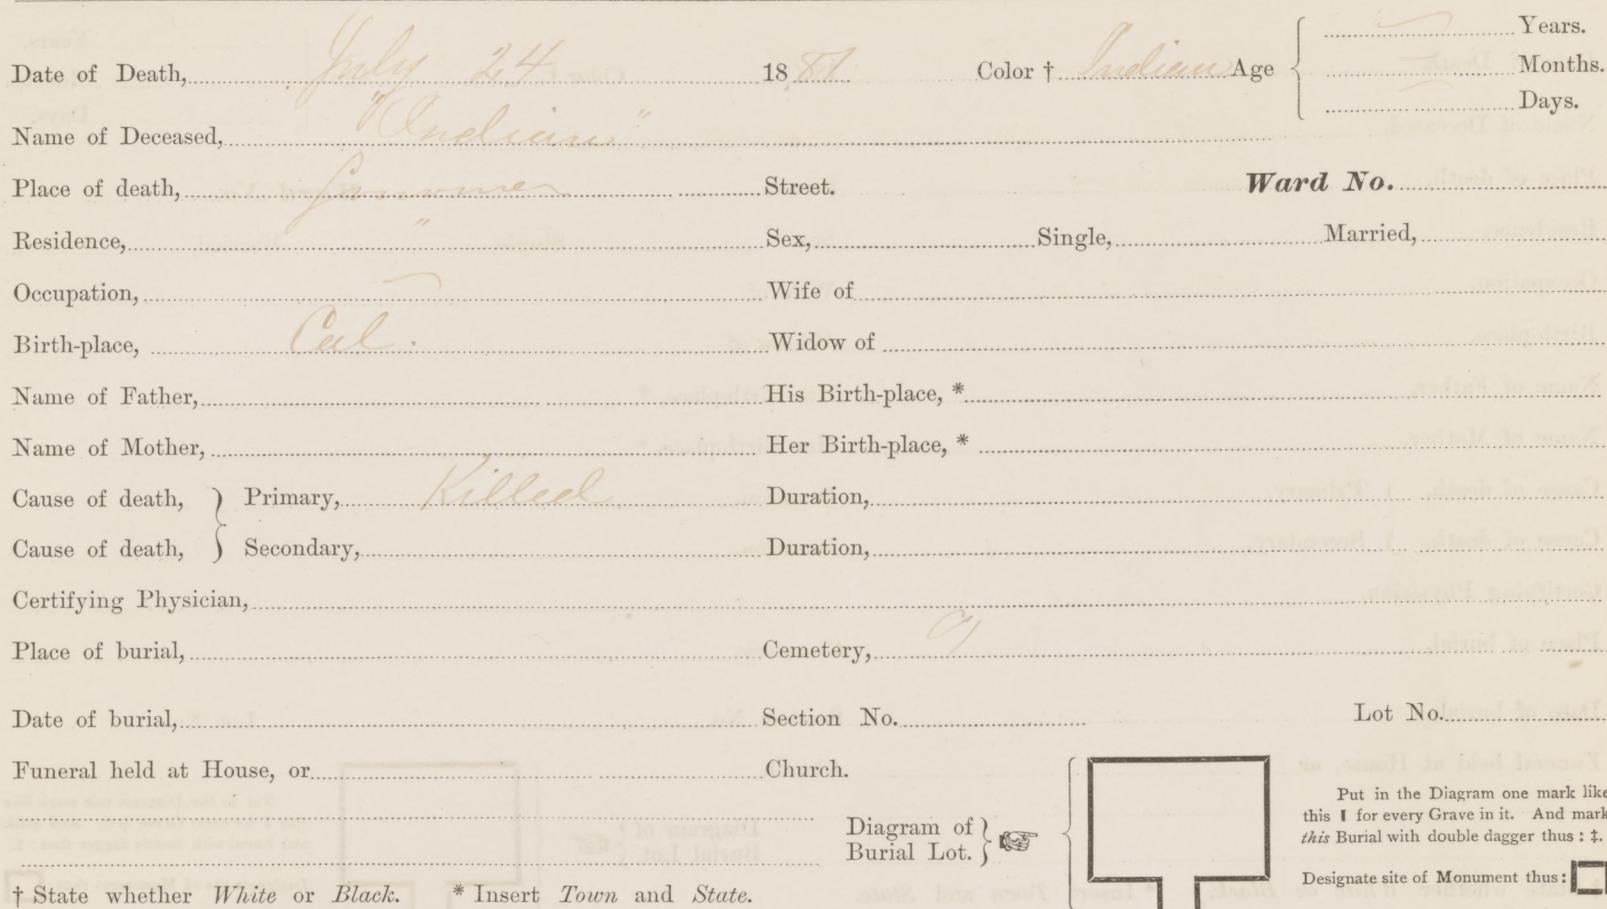 Date of Death, July 24 1881 Color † Indian Age { Years.
Months.
Days.
Name of Deceased, "Indian"
Place of death, Street. Ward No.
Residence, " Sex, Single, Married,
Occupation, Wife of
Birth-place, Cal. Widow of
Name of Father, His Birth-place, *
Name of Mother, Her Birth-place, *
Cause of death, } Primary, Killed Duration,
Cause of death, } Secondary, Duration,
Certifying Physician,
Place of burial, Cemetery,
Date of burial, Section No. Lot No.
Funeral held at House, or Church.
Diagram of
Burial Lot. }
Put in the Diagram one mark like
this I for every Grave in it. And mark
this Burial with double dagger thus : ‡.
Designate site of Monument thus :
† State whether White or Black. * Insert Town and State.